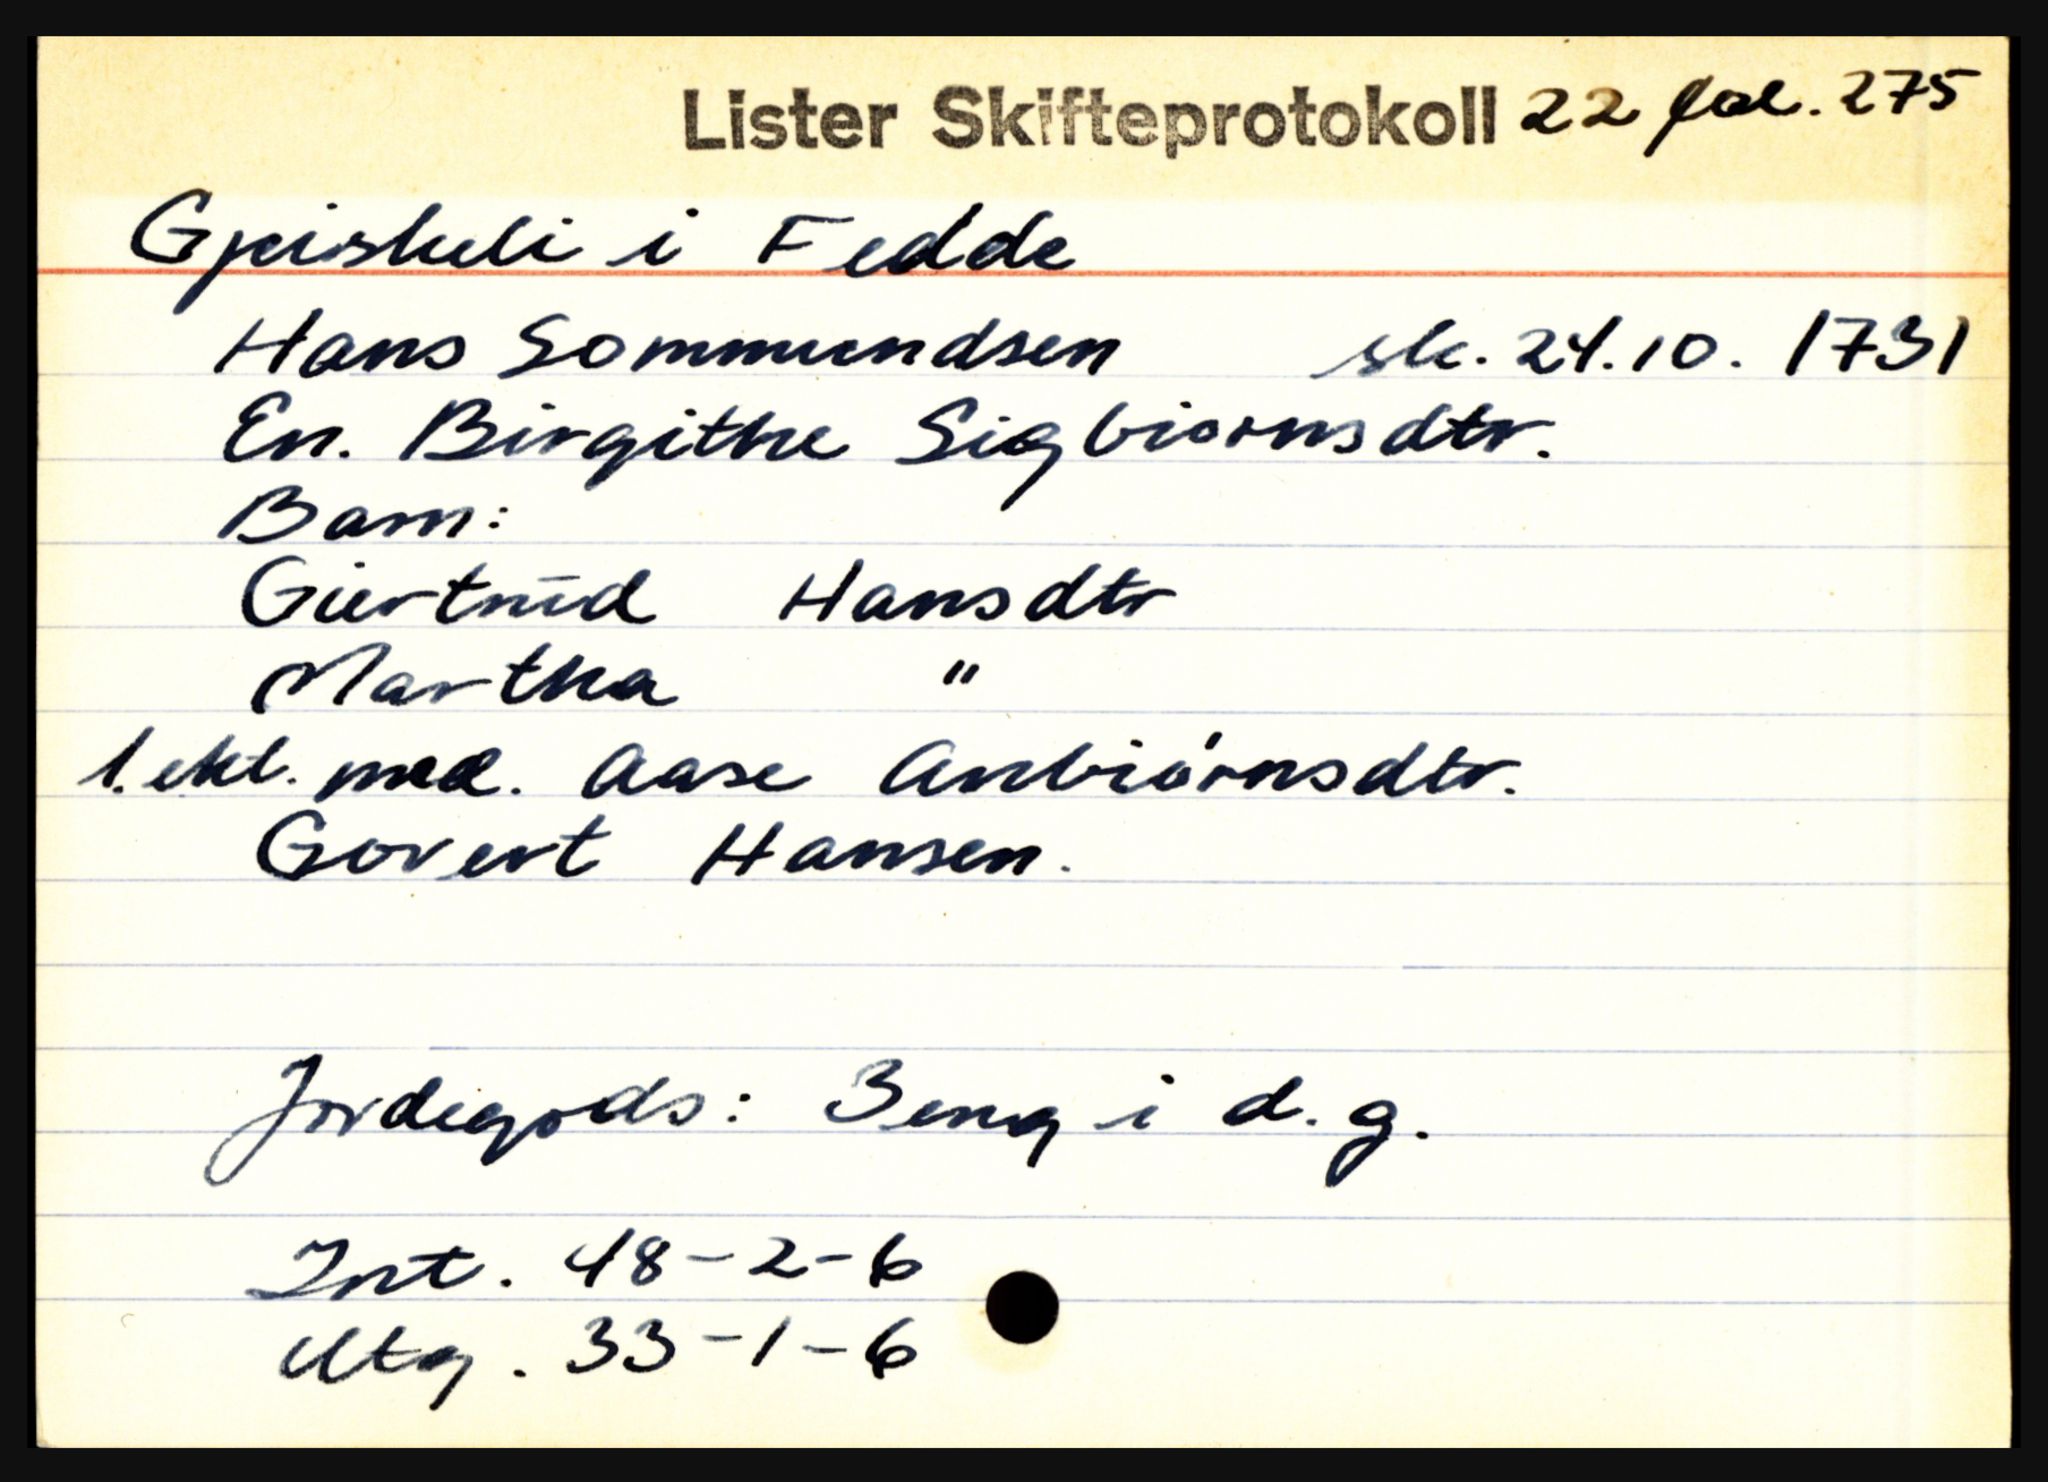 Lister Skifteprotokoll 22 fol. 275
Gjeiskeli i Fedde
Hans Sommundsen sk. 24.10. 1731
En. Birgithe Sigbiornsdtr.
Barn:
Giertrud Hansdtr
Martha "
1. ekt. med. Aase Anbiørnsdtr.
Govert Hansen.
Jordegods: 3 eng i d. g.
Int. 48-2-6
Utg. 33-1-6